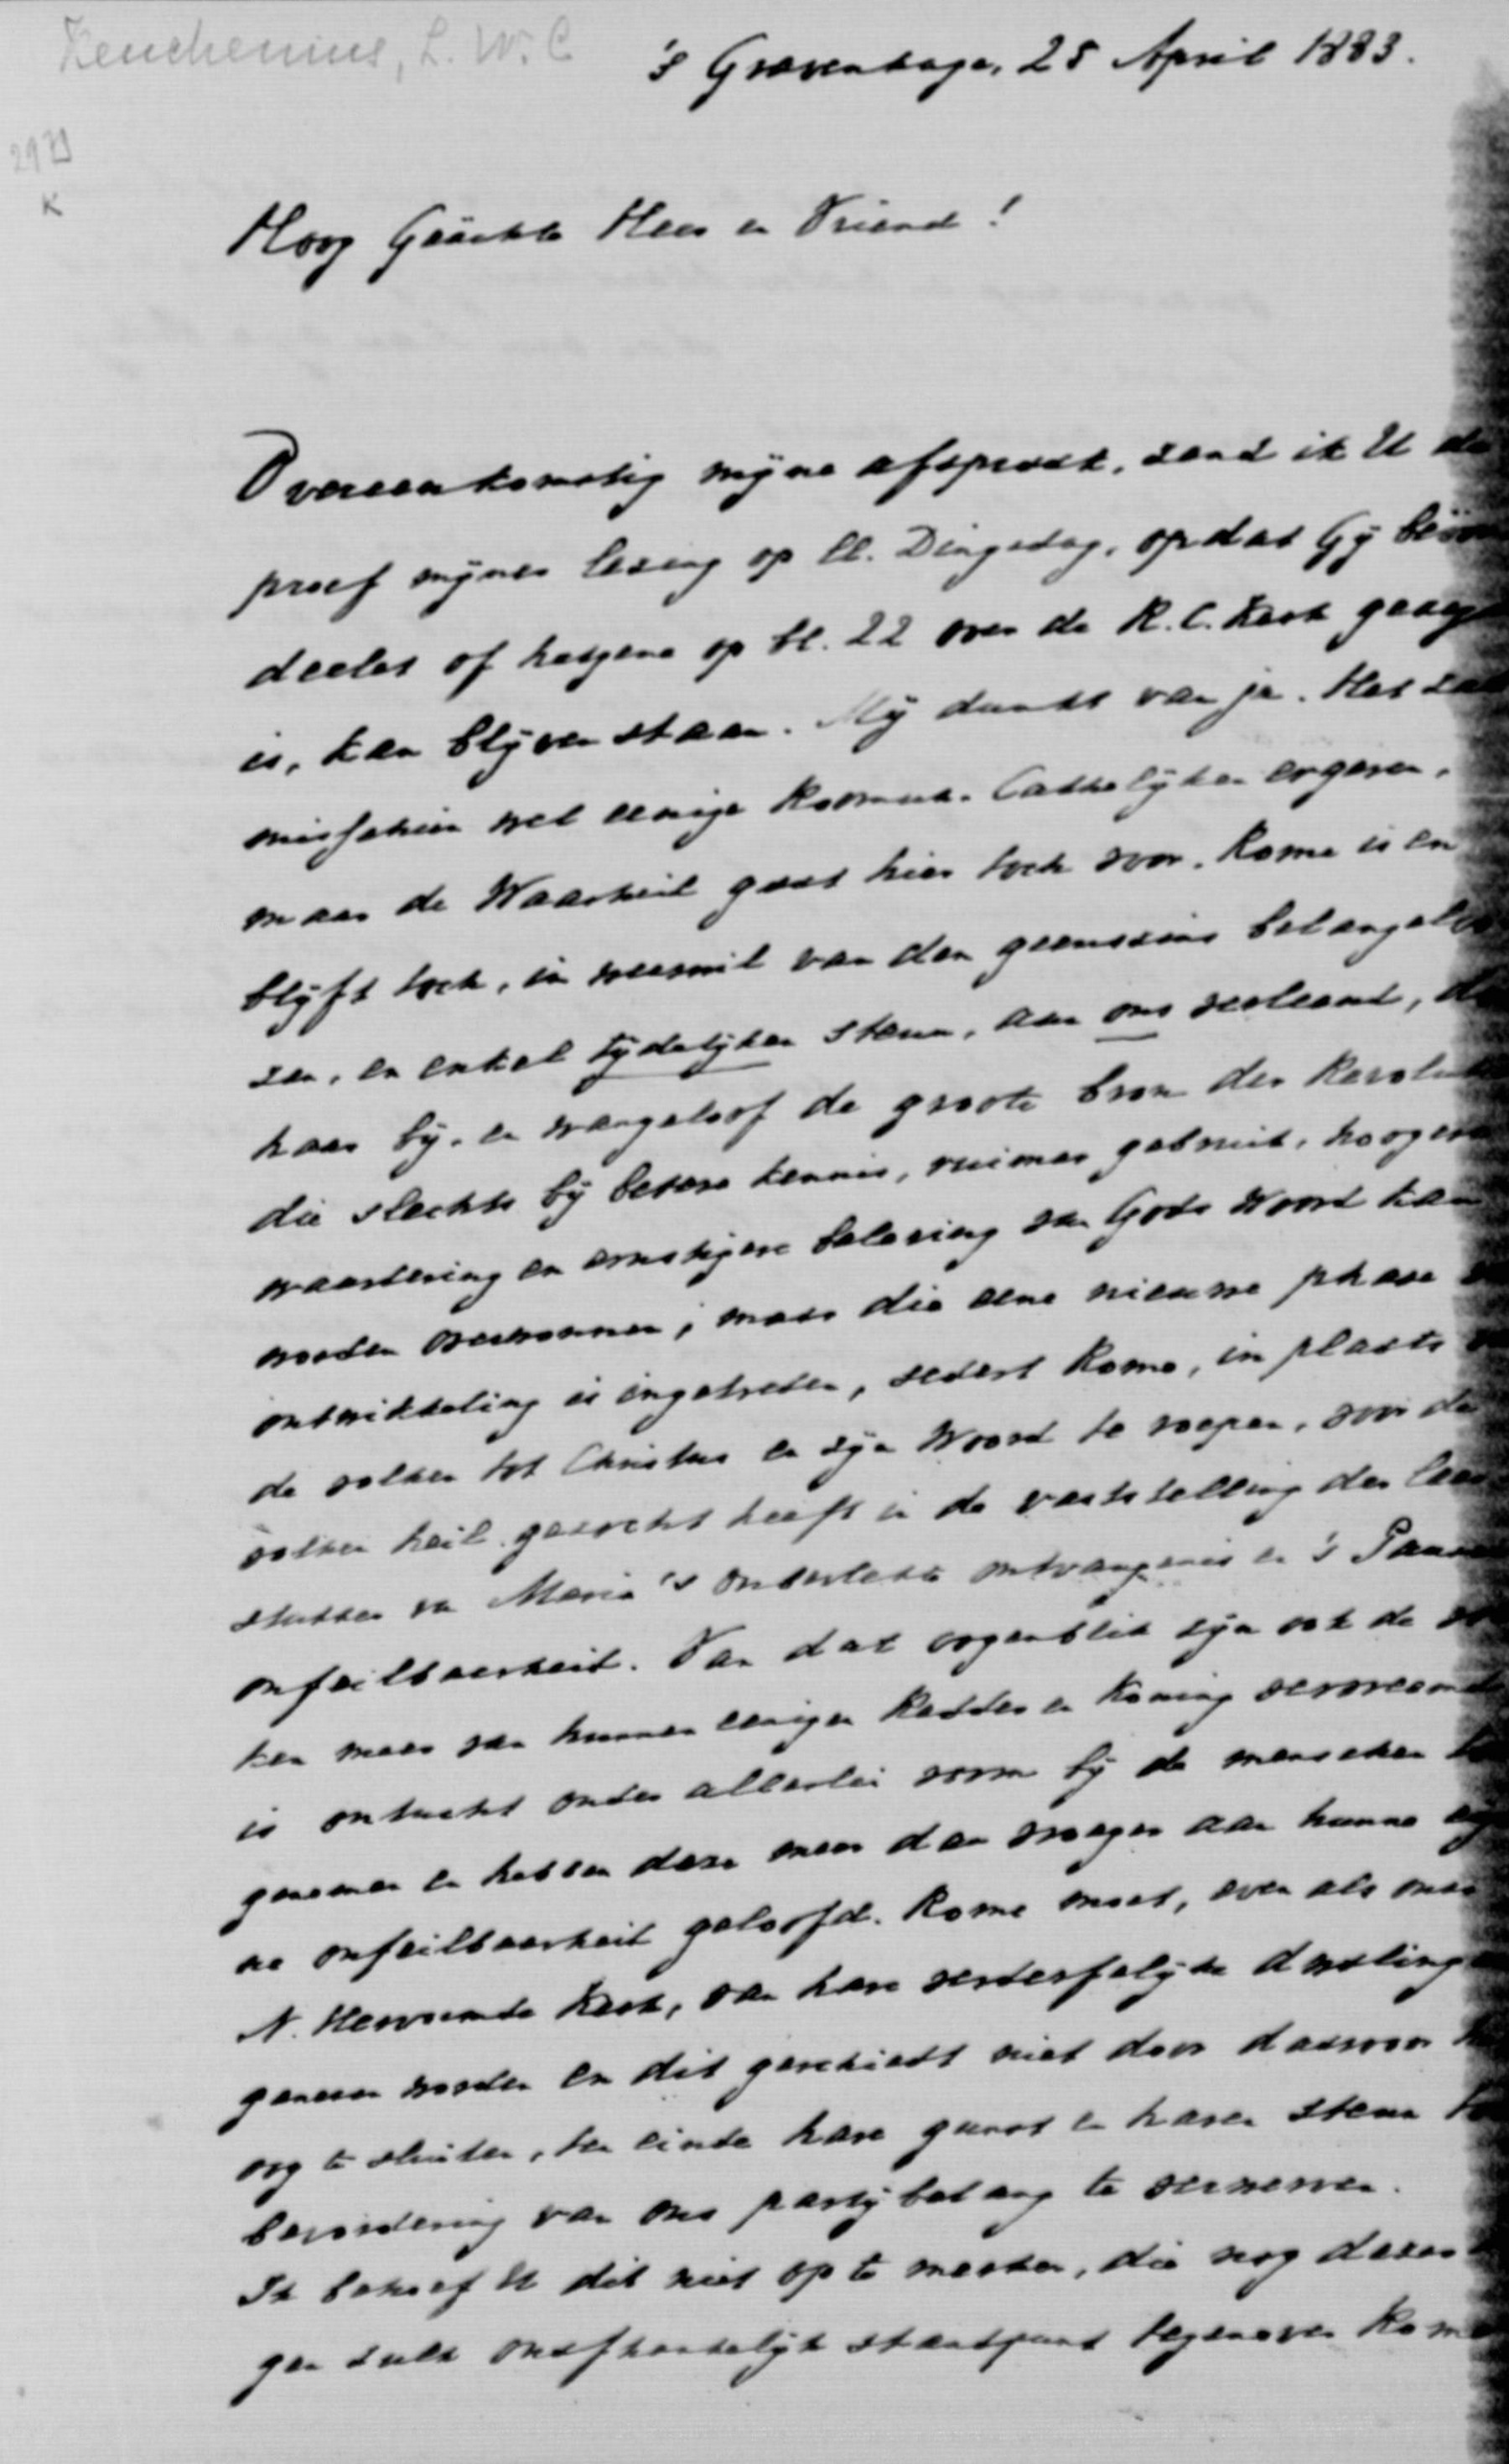 Keuchenius, L. W. C
's Gravenhage, 25 April 1883.
2979
K
Hoog Geächte Heer en Vriend!
Overeenkomstig mijne afspraak, zend ik U de
proef mijner lezing op ll. Dingsdag, opdat Gij beöor
deelet of hetgene op bl. 22 over de R. C. Kerk gezegd
is, kan blijven staan. Mij dunkt van ja. Het zal
misschien wel eenige Roomsch-Catholijken ergeren,
maar de Waarheid gaat hier toch voor. Rome is en
blijft toch, in weerwil van den geenszins belangeloo
zen, en enkel tijdelijken steun, aan ons verleend, de
haar bij- en wangeloof de groote bron der Revolutie
die slechts by betere kennis, ruimer gebruik, hoogere
waardering en ernstigere beleving van Gods Woord kan
worden overwonnen; maar die eene nieuwe phase van
ontwikkeling is ingetreden, sedert Rome, in plaats van
de volken tot Christus en zijn Woord te roepen, voor de
volken heil gezocht heeft in de vaststelling der leer-
stukken van Maria's onbevlekte ontvangenis en 's Pausen
onfeilbaarheid. Van dat oogenblik zijn ook de vol
ken meer van hunnen eenigen Redder en Koning vervreemd
is ontucht onder allerlei vorm bij de menschen toe
genomen en hebben deze meer dan vroeger aan hunne eige
ne onfeilbaarheid geloofd. Rome moet, even als onze
N. Hervormde Kerk, van hare verderfelijke dwalingen
genezen worden en dit geschiedt niet door daarvoor het
oog te sluiten, ten einde hare gunst en haren steun tot
bevordering van ons partijbelang te verwerven.
Ik behoef U dit niet op te merken, die nog dezer da
gen zulk onafhankelijk standpunt tegenover Rome